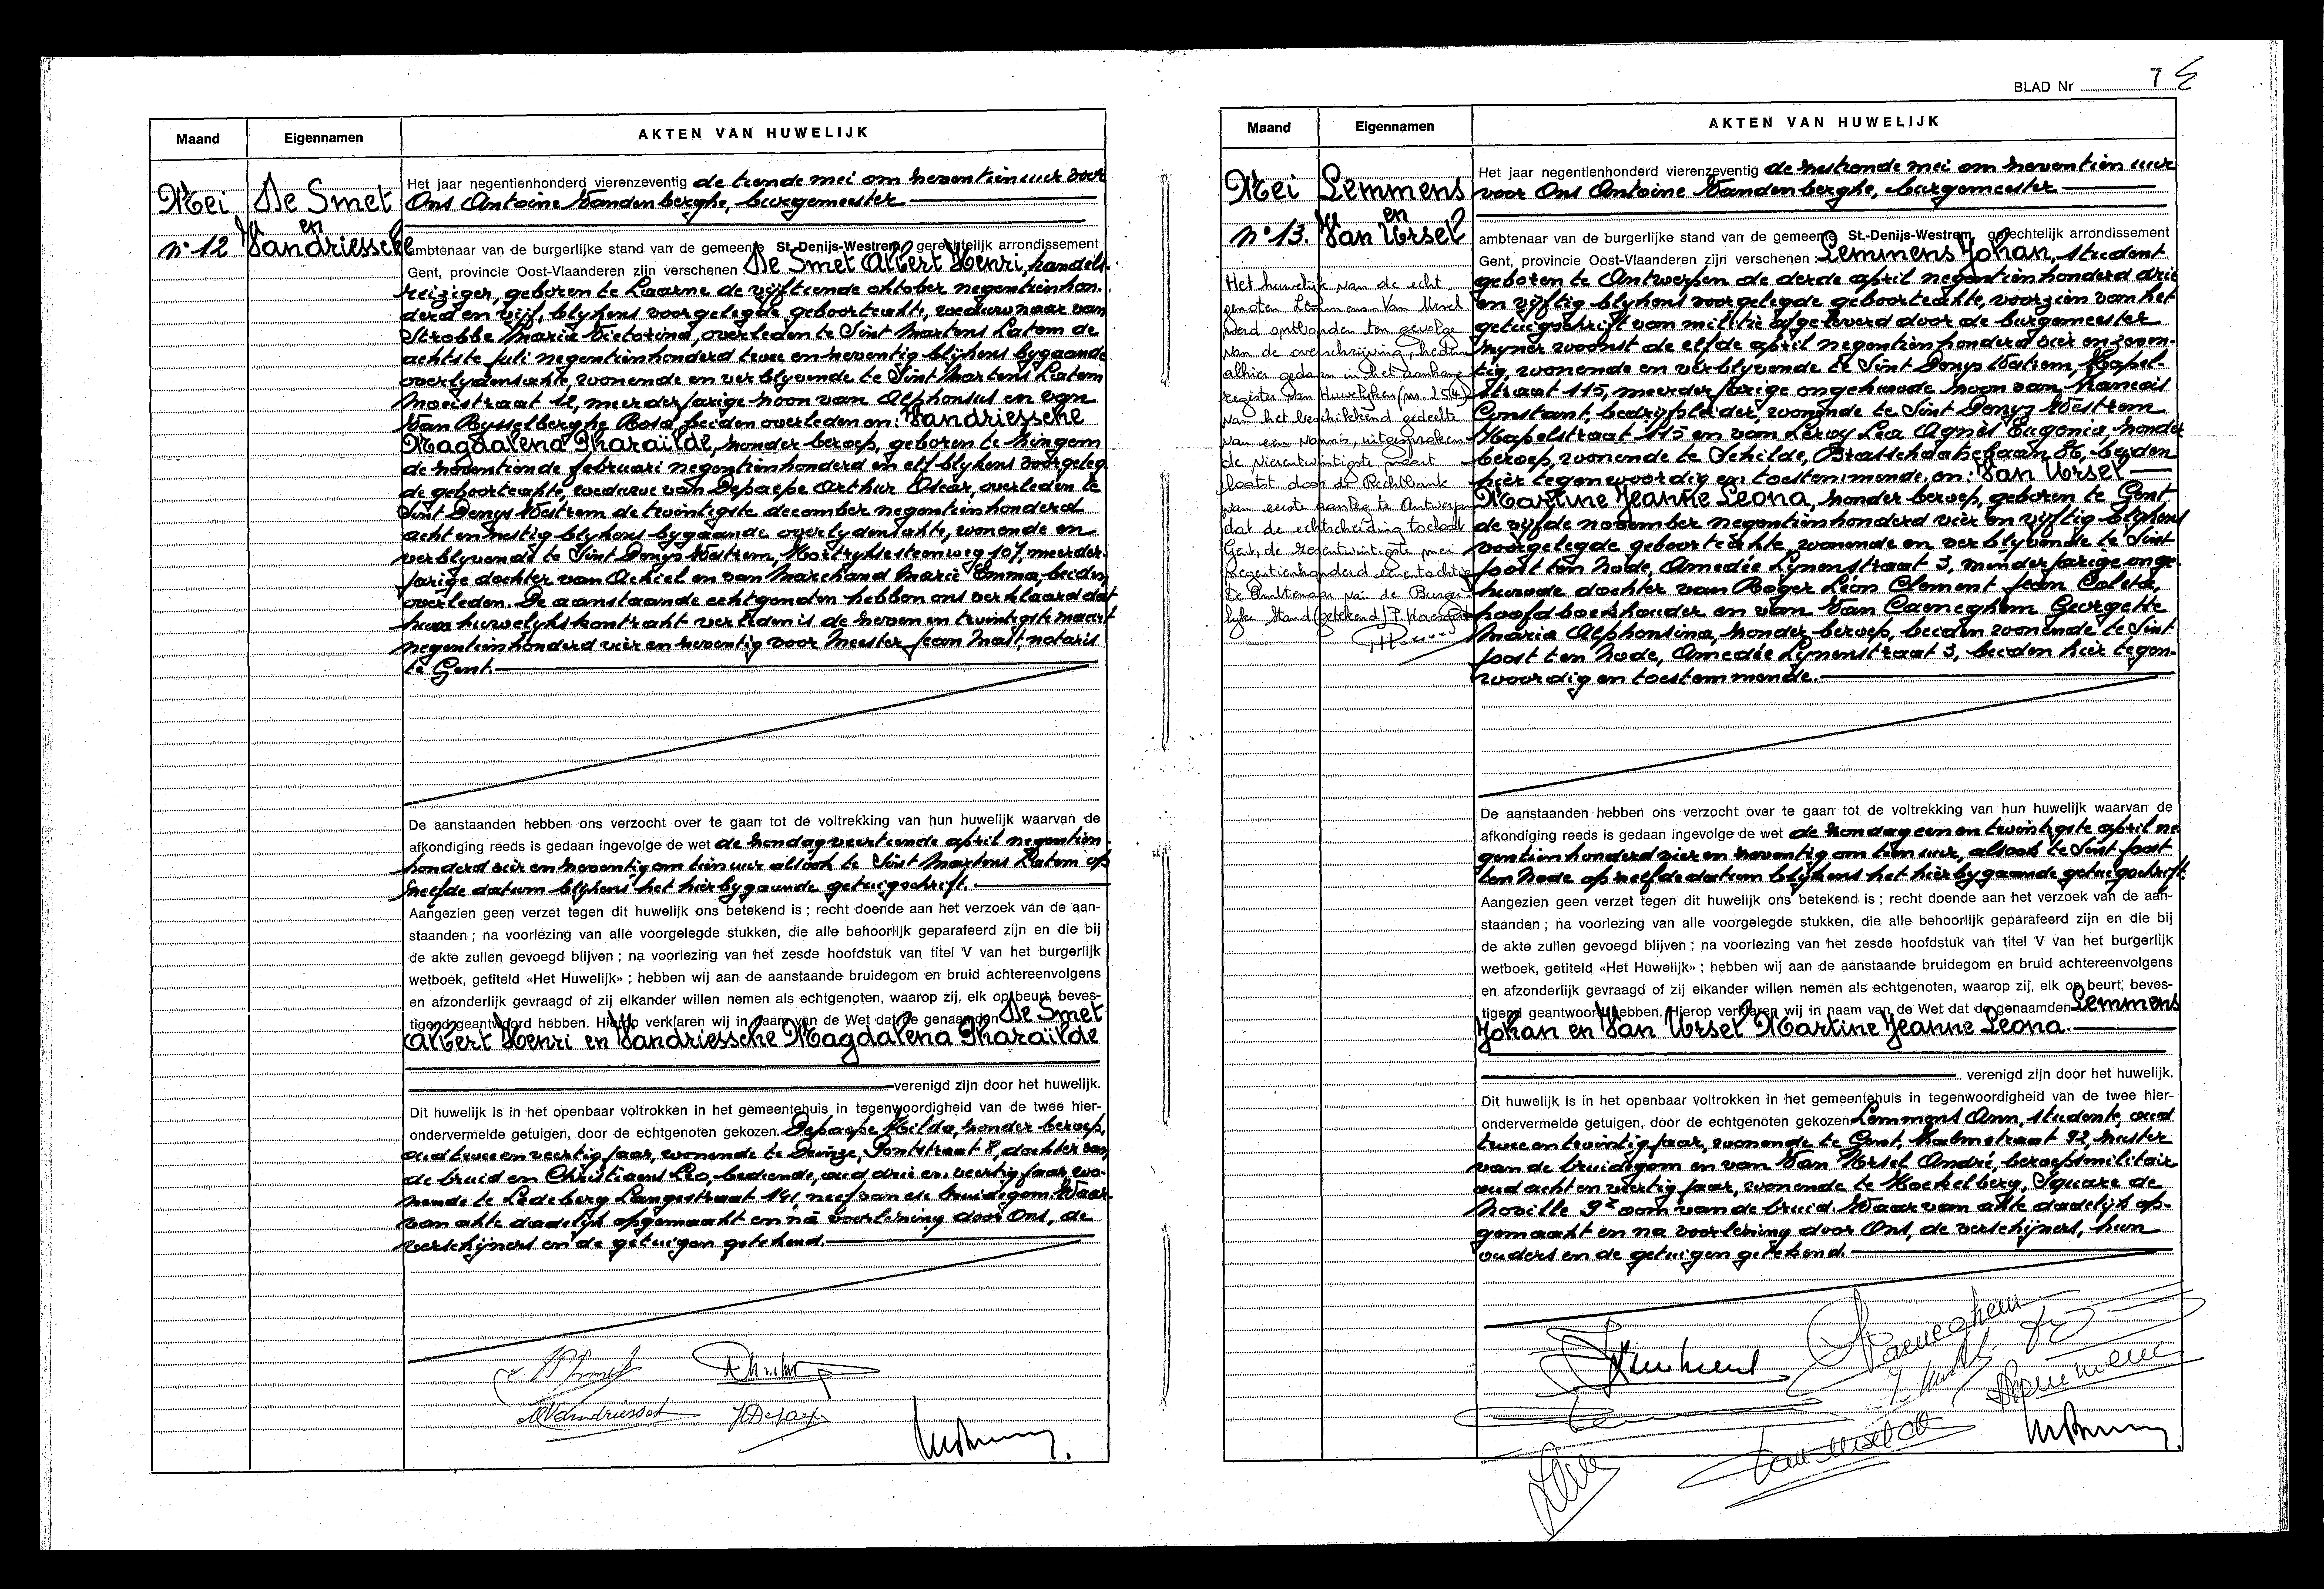 Maand
Eigennamen
AKTEN VAN HUWELIJK
Mei
De Smet
en
n° 12
Vandriessche
Het jaar negentienhonderd vierenzeventig de tiende mei om zeventien uur voor
Ons Antoine Vandenberghe, burgemeester
ambtenaar van de burgerlijke stand van de gemeente St-Denijs-Westrem, gerechtelijk arrondissement
Gent, provincie Oost-Vlaanderen zijn verschenen De Smet Albert Henri, handels-
reiziger, geboren te Laarne de vijftiende oktober negentienhon-
derd en vijf, blijkens voorgelegde geboorteakte, weduwnaar van
Strobbe Maria Victorina, overleden te Sint Martens Latem de
achtste juli negentienhonderd twee en zeventig blijkens bygaande
overlydensakte, wonende en verblyvende te Sint Martens Latem
Moeistraat 12, meerderjarige zoon van Alphonsius en van
Van Rysselberghe Rosa, beiden overleden en: Vandriessche
Magdalena Pharaïlde, zonder beroep, geboren te Zingem
de zeventiende februari negentienhonderd en elf blykens voorgeleg
de geboorteakte, weduwe van Depaepe Arthur Oscar, overleden te
Sint Denys Westrem de twintigste december negentienhonderd
acht en zestig blykens bygaande overlydensakte, wonende en
verblyvende te Sint Denys Westrem, Kortryksesteenweg 107, meerder-
jarige dochter van Achiel en van Marchand Marie Emma, beiden
overleden. De aanstaande echtgenoten hebben ons verklaard dat
hun huwelykskontrakt verleden is de zeven en twintigste maart
negentienhonderd vier en zeventig voor Meester Jean Mast, notaris
te Gent.
De aanstaanden hebben ons verzocht over te gaan tot de voltrekking van hun huwelijk waarvan de
afkondiging reeds is gedaan ingevolge de wet de zondag veertiende april negentien
honderd vier en zeventig om tien uur alsook te Sint Martens Latem op
zelfde datum blijkens het hierbygaande getuigschrift.
Aangezien geen verzet tegen dit huwelijk ons betekend is ; recht doende aan het verzoek van de aan-
staanden ; na voorlezing van alle voorgelegde stukken, die alle behoorlijk geparafeerd zijn en die bij
de akte zullen gevoegd blijven ; na voorlezing van het zesde hoofdstuk van titel V van het burgerlijk
wetboek, getiteld «Het Huwelijk» ; hebben wij aan de aanstaande bruidegom en bruid achtereenvolgens
en afzonderlijk gevraagd of zij elkander willen nemen als echtgenoten, waarop zij, elk op beurt, beves-
tigend geantwoord hebben. Hierop verklaren wij in naam van de Wet dat de genaamden De Smet
Albert Henri en Vandriessche Magdalena Pharaïlde
verenigd zijn door het huwelijk.
Dit huwelijk is in het openbaar voltrokken in het gemeentehuis in tegenwoordigheid van de twee hier-
ondervermelde getuigen, door de echtgenoten gekozen. Depaepe Hilda, zonder beroep,
oud twee en veertig jaar, wonende te Deinze, Pontstraat 8, dochter van
de bruid en Christiaens Leo, bediende, oud drie en veertig jaar, wo-
nende te Ledeberg Langestraat 141 neef van de bruidegom. Waar-
van akte dadelijk opgemaakt en na voorlezing door Ons, de
verschijners en de getuigen getekend.
BLAD Nr 7
Maand
Eigennamen
AKTEN VAN HUWELIJK
Mei
Lemmens
en
n° 13.
Van Ursel
Het huwelijk van de echt-
genoten Lemmens-Van Ursel
werd ontbonden ten gevolge
van de overschrijving, heden
alhier gedaan in het aanhang
register van Huwelijken (nr. 254)
van het beschikkend gedeelte
van een vonnis, uitgesproken
de vierentwintigste maart
laatst door de Rechtbank
van eerste aanleg te Antwerpen
dat de echtscheiding toelaat
Gent, de zevenentwintigste mei
negentienhonderd eenentachtig
De Ambtenaar van de Burger-
lijke Stand (getekend)
Het jaar negentienhonderd vierenzeventig de zestiende mei om zeventien uur
voor Ons Antoine Vandenberghe, burgemeester
ambtenaar van de burgerlijke stand van de gemeente St.-Denijs-Westrem, gerechtelijk arrondissement
Gent, provincie Oost-Vlaanderen zijn verschenen : Lemmens Johan, student
geboren te Antwerpen de derde april negentienhonderd drie
en vijftig blykens voorgelegde geboorteakte, voorzien van het
getuigschrift van militie afgeleverd door de burgemeester
zyner woonst de elfde april negentienhonderd vier en zeven-
tig, wonende en verblyvende te Sint Denys Westrem, Kapel-
straat 115, meerderjarige ongehuwde zoon van Francois
Constant, bedrijfsleider, wonende te Sint Denys Westrem
Kapelstraat 115 en van Leroy Lea Agnès Eugenia, zonder
beroep, wonende te Schilde, Brasschaatsebaan 86, beiden
hier tegenwoordig en toestemmende, en: Van Ursel
Martine Jeanne Leona, zonder beroep, geboren te Gent
de vijfde november negentienhonderd vier en vijftig blykens
voorgelegde geboorteakte, wonende en verblyvende te Sint
Joost ten Node, Amedée Lynenstraat 3, minderjarige onge-
huwde dochter van Roger Léon Clement Jean Coleta,
hoofdboekhouder en van Van Caeneghem Georgette
Maria Alphonsina, zonder beroep, beiden wonende te Sint
Joost ten Node, Amedée Lynenstraat 3, beiden hier tegen-
woordig en toestemmende.
De aanstaanden hebben ons verzocht over te gaan tot de voltrekking van hun huwelijk waarvan de
afkondiging reeds is gedaan ingevolge de wet de zondag een en twintigste april ne
gentienhonderd vier en zeventig om tien uur, alsook te Sint Joost
ten Node op zelfde datum blijkens het hierbygaande getuigschrift.
Aangezien geen verzet tegen dit huwelijk ons betekend is ; recht doende aan het verzoek van de aan-
staanden ; na voorlezing van alle voorgelegde stukken, die alle behoorlijk geparafeerd zijn en die bij
de akte zullen gevoegd blijven ; na voorlezing van het zesde hoofdstuk van titel V van het burgerlijk
wetboek, getiteld «Het Huwelijk» ; hebben wij aan de aanstaande bruidegom en bruid achtereenvolgens
en afzonderlijk gevraagd of zij elkander willen nemen als echtgenoten, waarop zij, elk op beurt, beves-
tigend geantwoord hebben. Hierop verklaren wij in naam van de Wet dat de genaamden Lemmens
Johan en Van Ursel Martine Jeanne Leona.
verenigd zijn door het huwelijk.
Dit huwelijk is in het openbaar voltrokken in het gemeentehuis in tegenwoordigheid van de twee hier-
ondervermelde getuigen, door de echtgenoten gekozen Lemmens Ann, studente, oud
twee en twintig jaar, wonende te Gent, Kalmstraat 92 zuster
van de bruidegom en van Van Ursel André, beroepsmilitair
oud acht en veertig jaar, wonende te Koekelberg, Square de
Noville 9² oom van de bruid. Waarvan akte dadelijk op-
gemaakt en na voorlezing door Ons, de verschijners, hun
ouders en de getuigen getekend.